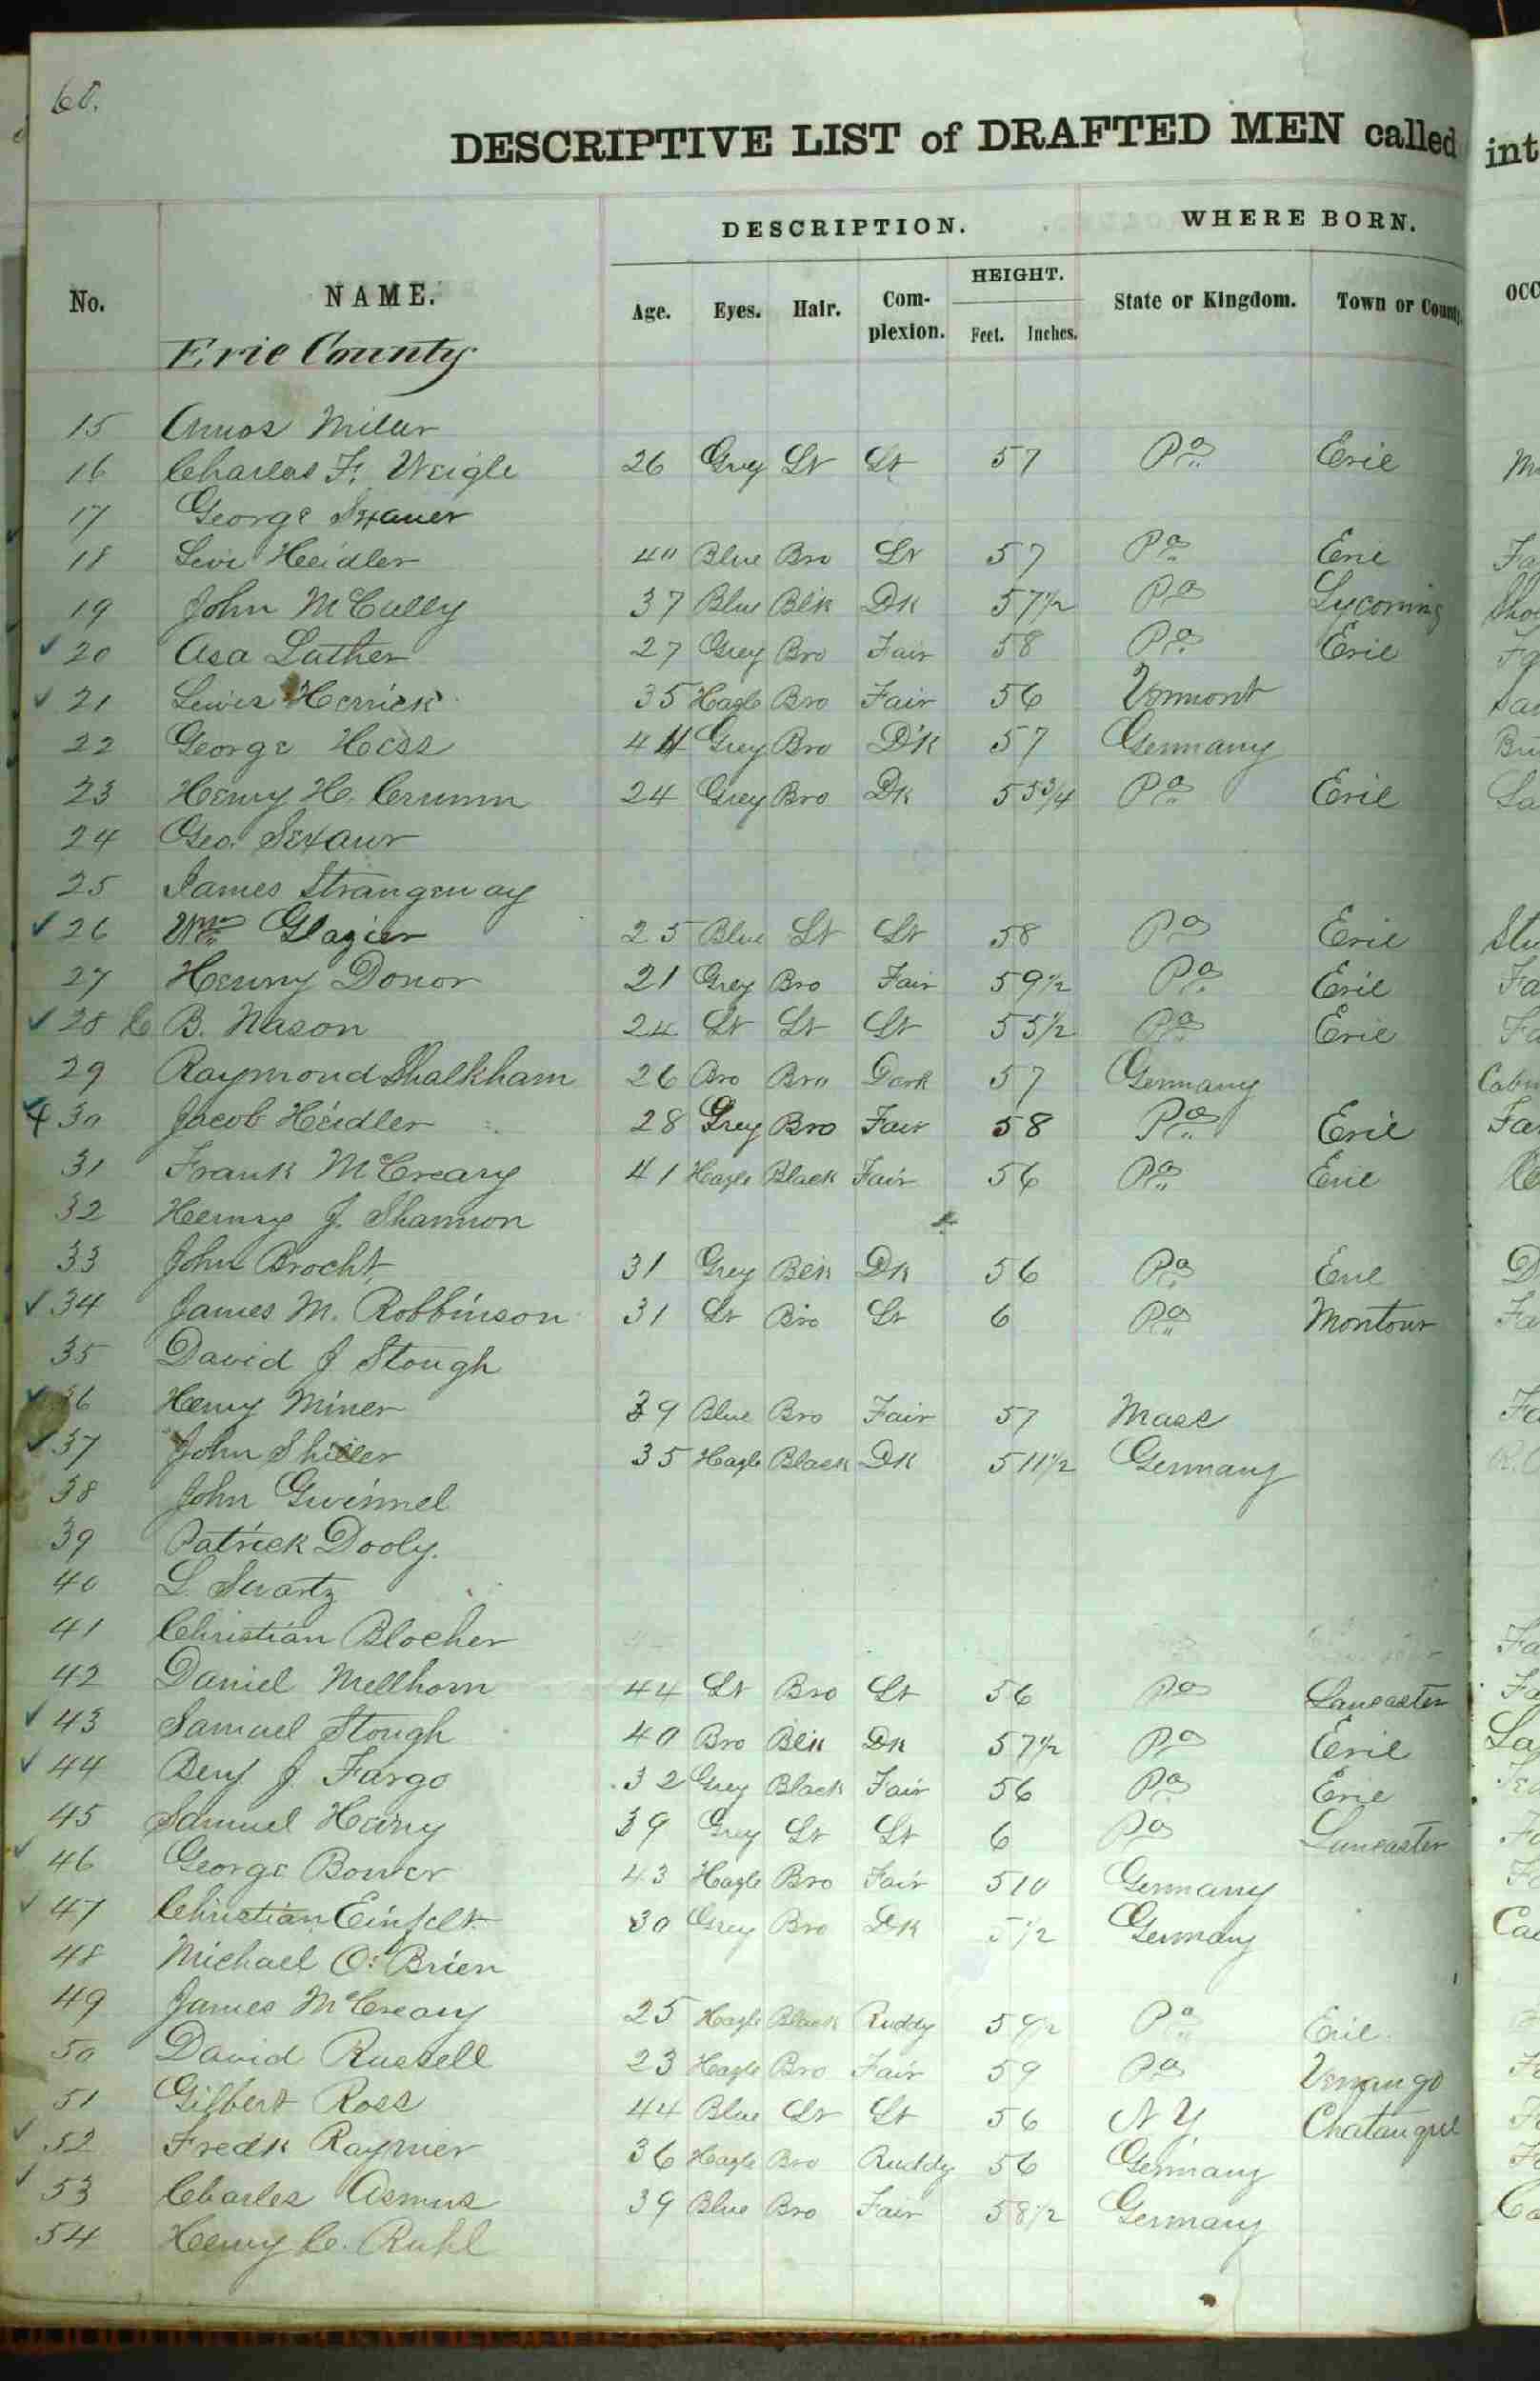 60.
DESCRIPTIVE LIST of DRAFTED MEN called int
DESCRIPTION. WHERE BORN.
No. NAME. Age. Eyes. Hair. Com-plexion. HEIGHT. Feet. Inches. State or Kingdom. Town or County. OCC
Erie County
15 Amos Miller
16 Charles F. Weigle 26 Grey Lt Lt 5 7 Pa Erie
17 George Sexauer
18 Levi Heidler 40 Blue Bro Lt 5 7 Pa Erie Fa
19 John McCully 37 Blue Blk Dk 5 7 1/2 Pa Lycoming Sho
20 Asa Lather 27 Grey Bro Fair 5 8 Pa Erie Fa
21 Lewis Herrick 35 Hazle Bro Fair 5 6 Vermont
22 George Hess 44 Grey Bro Dk 5 7 Germany
23 Henry H. Crumm 24 Grey Bro Dk 5 5 3/4 Pa Erie La
24 Geo. Sexaur
25 James Strangeway
26 Wm Glazier 25 Blue Lt Lt 5 8 Pa Erie
27 Henry Donor 21 Grey Bro Fair 5 9 1/2 Pa Erie Fa
28 C B. Nason 24 Lt Lt Lt 5 5 1/2 Pa Erie Fa
29 Raymond Shalkham 26 Bro Bro Dark 5 7 Germany Cabi
30 Jacob Heidler 28 Grey Bro Fair 5 8 Pa Erie Fa
31 Frank McCreary 41 Hazle Black Fair 5 6 Pa Erie
32 Henry J. Shannon
33 John Brocht 31 Grey Blk Dk 5 6 Pa Erie
34 James M. Robbinson 31 Lt Bro Lt 6 Pa Montour Fa
35 David J Stough
36 Henry Miner 39 Blue Bro Fair 5 7 Mass Fa
37 John Shiller 35 Hazle Black Dk 5 11 1/2 Germany
38 John Gwinnel
39 Patrick Dooly.
40 L. Swartz
41 Christian Blocher Fa
42 Daniel Mellhorn 44 Lt Bro Lt 5 6 Pa Lancaster Fa
43 Samuel Stough 40 Bro Blk Dk 5 7 1/2 Pa Erie La
44 Benj J. Fargo 32 Grey Black Fair 5 6 Pa Erie
45 Samuel Hainy 39 Grey Lt Lt 6 Pa Lancaster
46 George Bower 43 Hazle Bro Fair 5 10 Germany
47 Christian Einfelt 30 Grey Bro Dk 5 1/2 Germany
48 Michael O'Brien
49 James McCreary 25 Hazle Black Ruddy 5 9 1/2 Pa Erie
50 David Russell 23 Hazle Bro Fair 5 9 Pa Venango
51 Gilbert Ross 44 Blue Lt Lt 5 6 N Y. Chatauque
52 Fredk Raynier 36 Hazle Bro Ruddy 5 6 Germany
53 Charles Asmus 39 Blue Bro Fair 5 8 1/2 Germany
54 Henry C. Ruhl